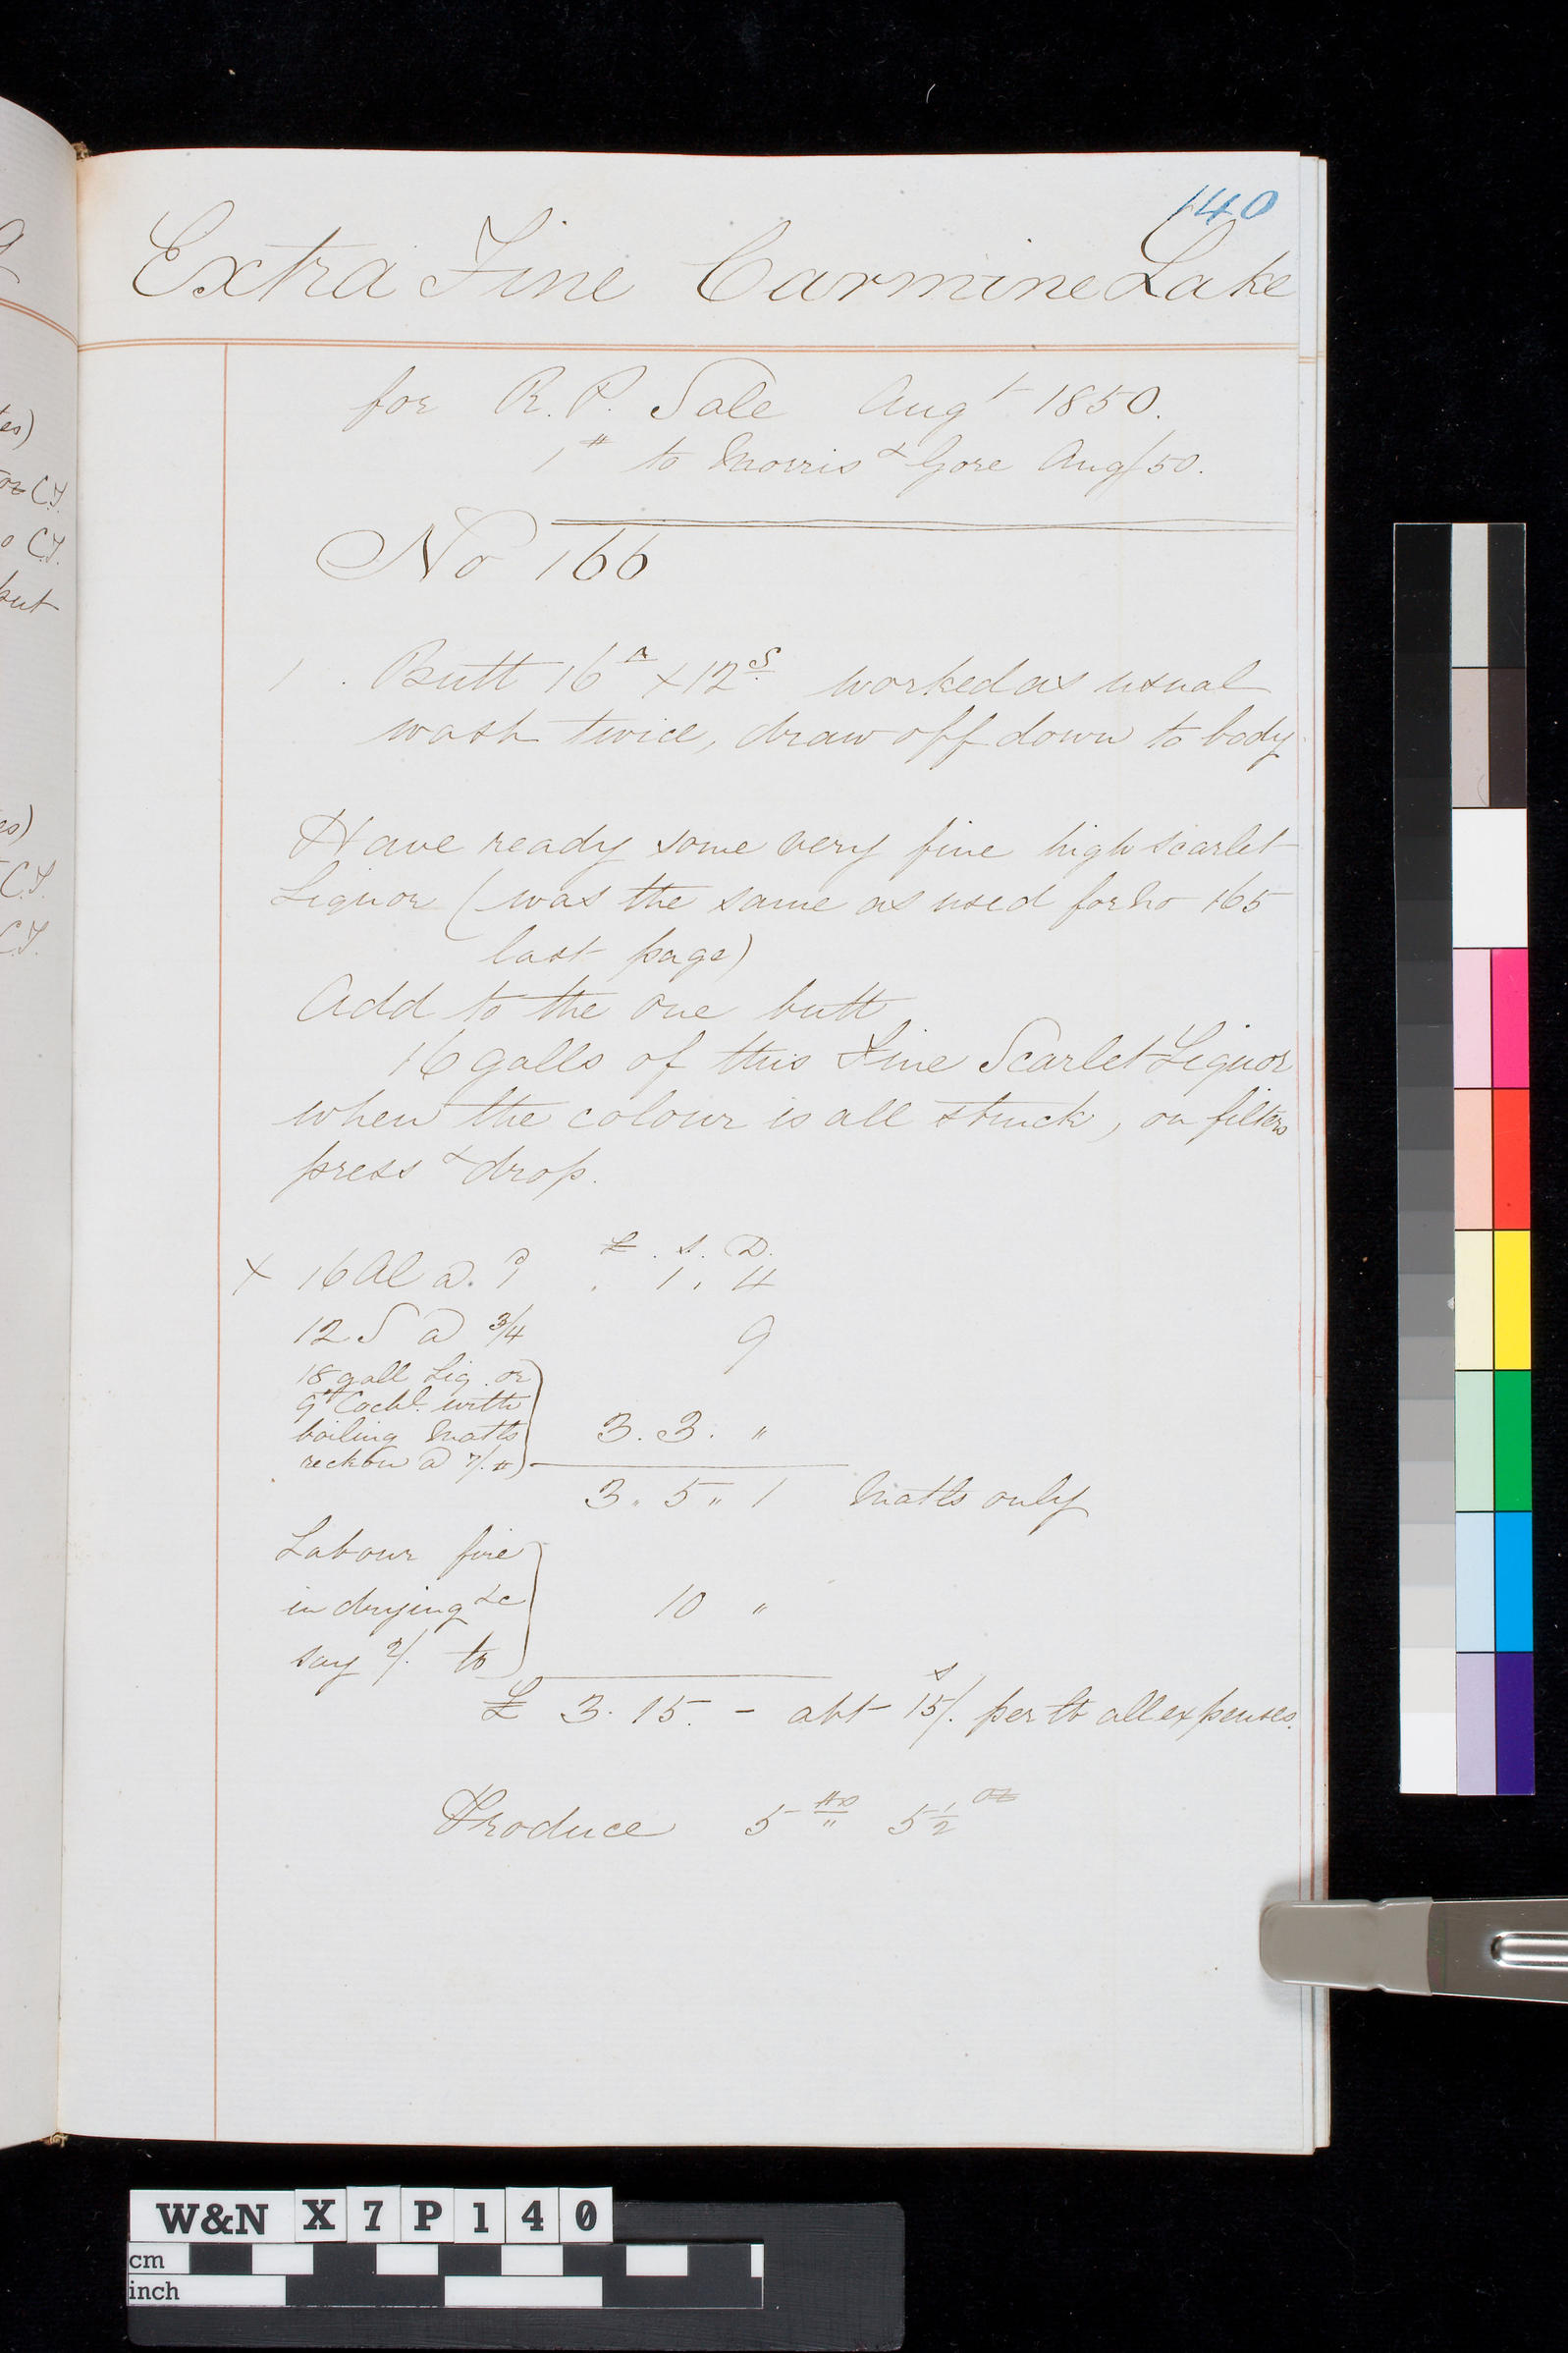 140
Extra Fine Carmine Lake
for R. P. Sale Augt 1850.
1 lb to Morris & Gore Aug/50.
No 166
1 . Butt 16 A + 12 S worked as usual
wash twice, draw off down to body
Have ready some very fine high scarlet
Liquor (was the same as used for No 165
last page)
Add to the one butt
16 galls of this Fine Scarlet Liquor
when the colour is all struck, on filters
press & drop.
£ . S. D.
X 16 Al a. 1 . 1 . 4
12 S a 3/4 9
18 gall Liq. or
9 lb Cochl. with
boiling Matls 3 . 3 . "
reckon a 7/. lb
3 . 5 " 1 Matls only
Labour fire
in drying &c 10 "
say 2/. lb
£ 3. 15. - abt 15/. s per lb all expenses.
Produce 5 lbs 5 1/2 oz
es)
oz C.T.
o C.T.
but
es)
C.T.
C.T.
W&N X 7 P 1 4 0
cm
inch